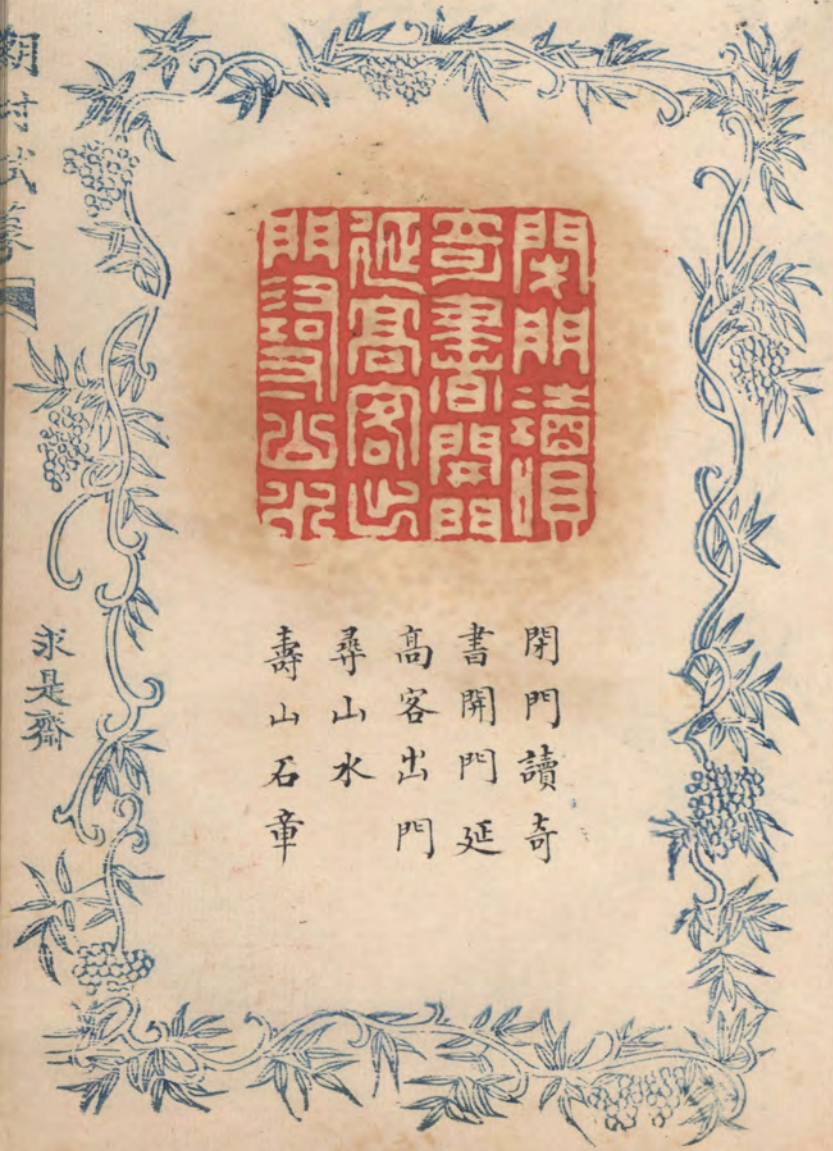 閉門讀
奇書開門
延高客出
門尋山水
閉門讀奇
書開門延
高客出門
尋山水
壽山石章
求是齋